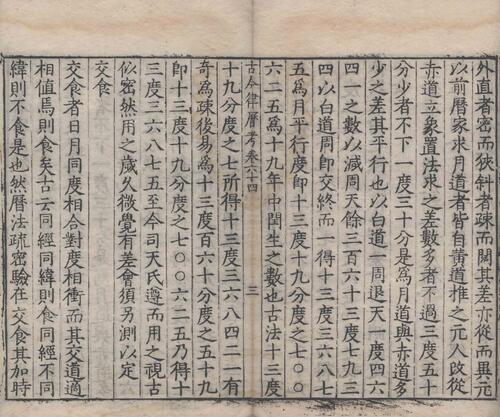 外直者密而狹斜者疎而闊其差亦從而異元
以前曆家求月道者皆自黃道推之元人改從
赤道立象置法求之差數多者不過三度五十
分少者不下一度三十分是爲月道與赤道多
少之差其平行也以白道一周退天一度四六
四一之數以減周天餘三百六十三度七九三
四以白道周即交終而一得十三度三六八七
五爲月平行度即十三度十九分度之七〇〇
六二五爲十九年中閏生之數也古法十三度
古今律曆考卷六十四
三
十九分度之七所得十三度三六八四二一有
奇爲疎後易爲十三度百六十分度之五十九
即十三度十九分度之七〇〇六二五乃得十
三度三六八七五至今司天氏遵而用之視古
似密然用之歲久微覺有差會須另測以定
交食
交食者日月同度相合對度相衝而其交道適
相值焉則食矣古云同經同緯則食同經不同
緯則不食是也然曆法疏密驗在交食其加時